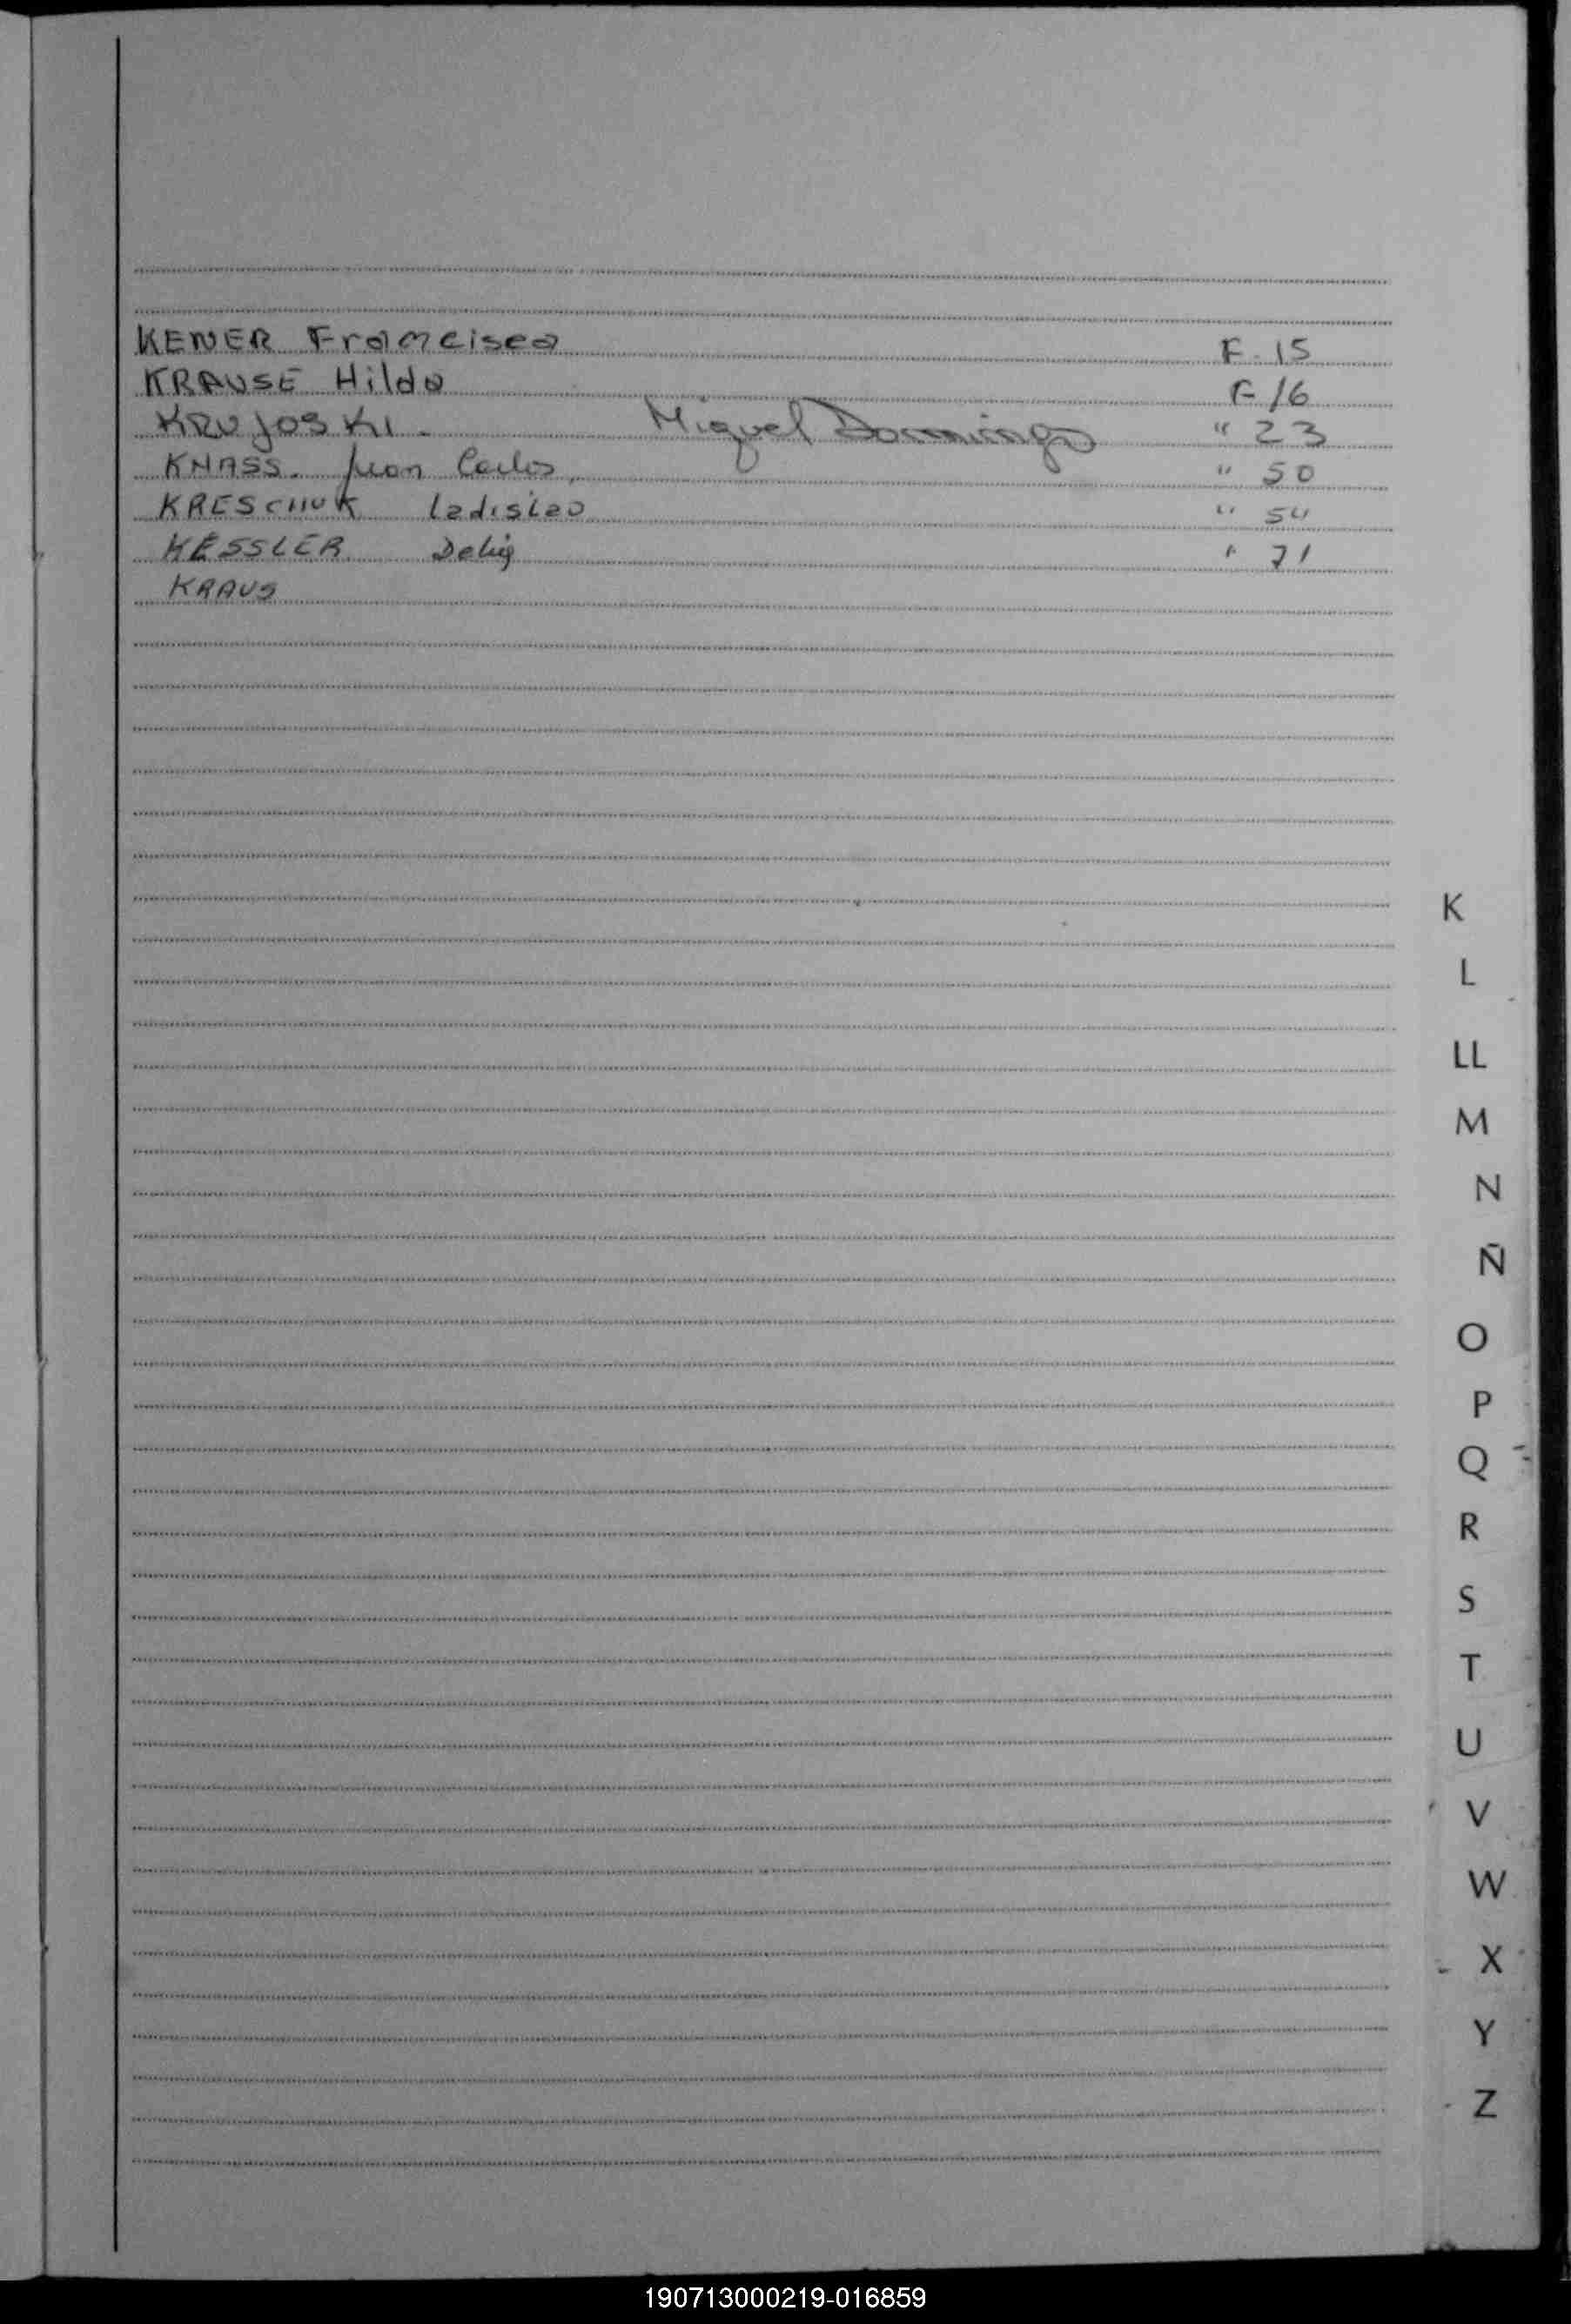 KENER Francisca F. 15
KRAUSE Hilda F 16
KRUJOSKI. Miguel Domingo " 23
KNASS. Juan Carlos, " 50
KRESCHUK Ladislao " 54
KESSLER " 71
KRAUS
K
L
LL
M
N
Ñ
O
P
Q
R
S
T
U
V
W
X
Y
Z
190713000219-016859